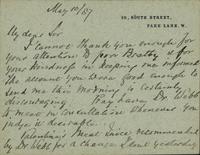 May 10/87
10, SOUTH STREET,
PARK LANE. W.
My dear Sir
I cannot thank you enough for
your attention to poor Beatty & for
your kindness in keeping me informed
The account you were good enough to
send me this morning is certainly
discouraging Pray have Dr. Webb
to meet in consultation whenever you
judge it desirable.
Valentine's Meat Juice recommended
by Dr. Webb for a change I sent yesterday